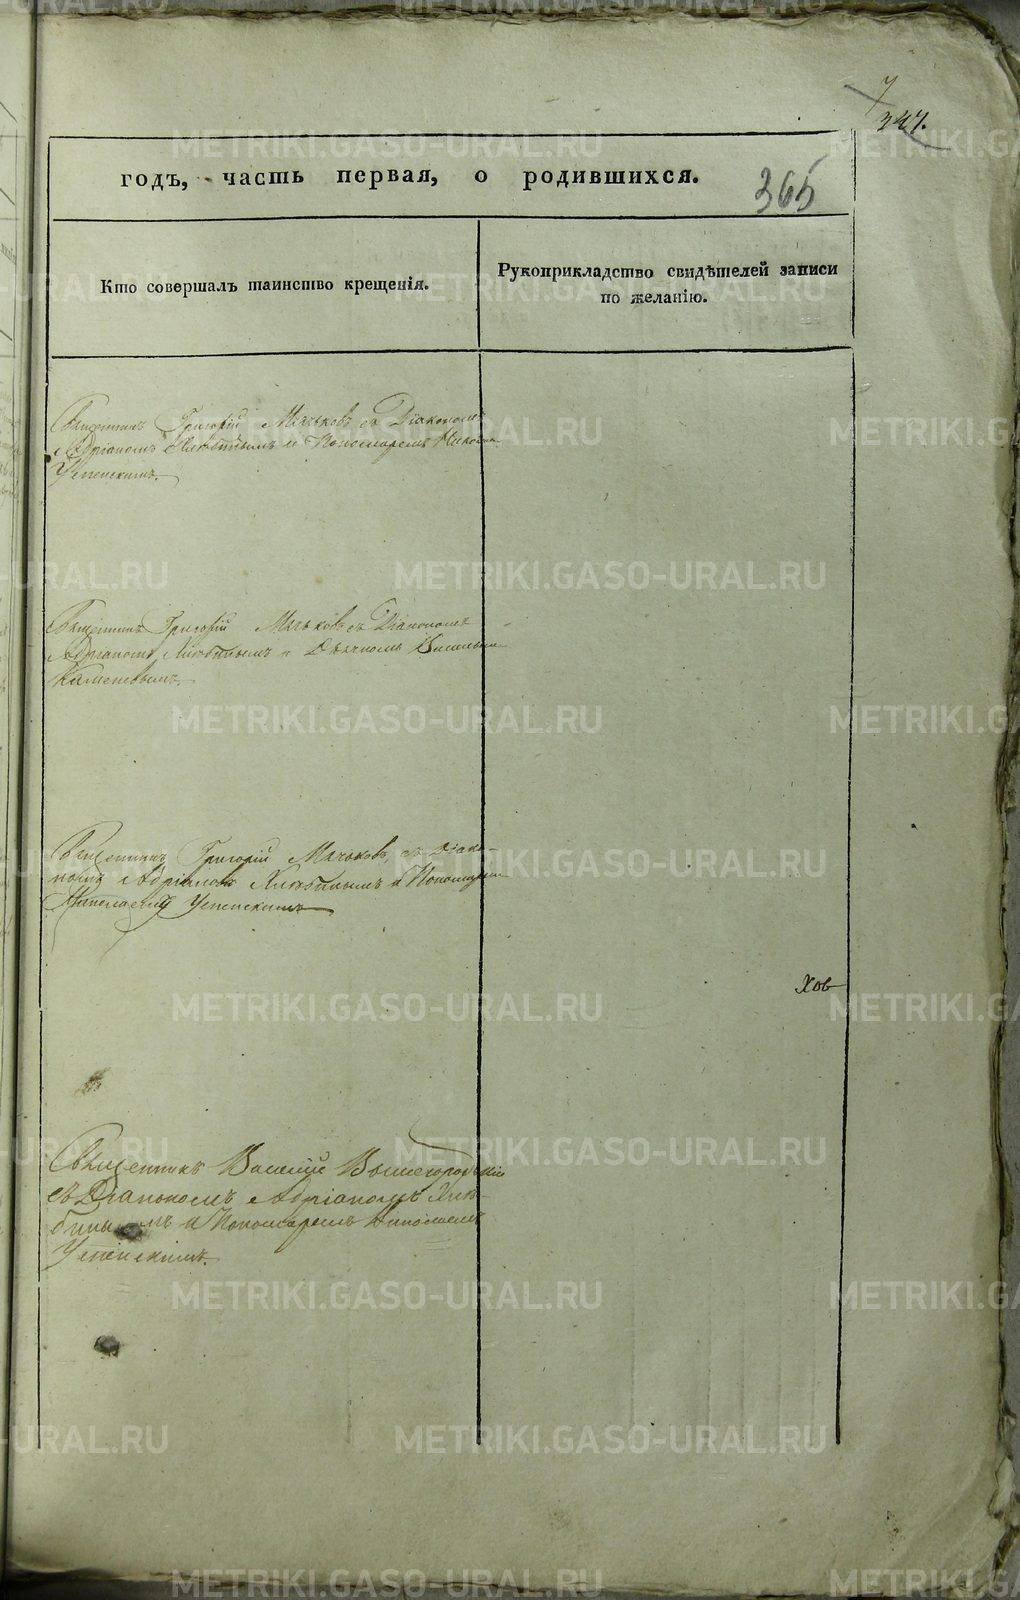 7
347.
годъ, часть первая, о родившихся.
365
Кто совершалъ таинство крещенія.
Рукоприкладство свидѣтелей записи
по желанію.
Священникъ Григорій Мячковъ съ Діакономъ
Адріаномъ Хлѣбинымъ и Пономаремъ
Успенскимъ.
Священникъ Григорій Мячковъ съ Діакономъ
Адріаномъ Хлѣбинымъ и Дьячкомъ
Священникъ Григорій Мячковъ съ Діако-
номъ Адріаномъ Хлѣбинымъ и Пономаремъ
Николаемъ Успенскимъ
Хов
Священникъ Василій Вышегородскій
съ Діакономъ Адріаномъ Хлѣ-
бинымъ и Пономаремъ Николаемъ
Успенскимъ.
METRIKI.GASO-URAL.RU